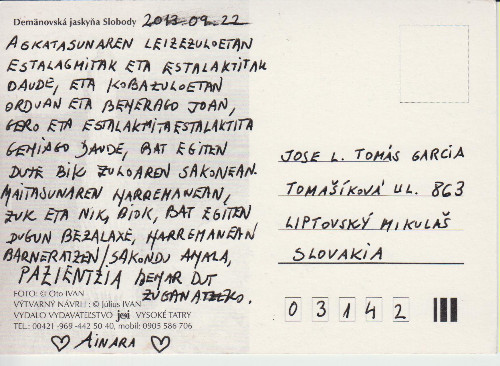 Demänovská jaskyňa Slobody 2013.09.22
ASKATASUNAREN LEIZEZULOETAN
ESTALAGMITAK ETA ESTALAKTITAK
DAUDE, ETA KOBAZULOETAN
ORDUAN ETA BEHERAGO JOAN,
GERO ETA ESTALAKMITAESTALAKTITA
GEHIAGO DAUDE, BAT EGITEN
DUTE BIK ZULOAREN SAKONEAN.
MAITASUNAREN HARREMANEAN,
ZUK ETA NIK, BIOK, BAT EGITEN
DUGUN BEZALAXE, HARREMANEAN
BARNERATZEN/SAKONDU AHALA,
PAZIENTZIA BEHAR DUT
ZUGANATZEKO.
FOTO: © Oto IVAN
VÝTVARNÝ NÁVRH: © Július IVAN
VYDALO VYDAVATEĽSTVO jesi VYSOKÉ TATRY
TEL.: 00421 -969 -442 50 40, mobil: 0905 586 706
♡ AINARA ♡
JOSE L. TOMÁS GARCIA
TOMAŠÍKOVÁ UL. 863
LIPTOVSKÝ MIKULAŠ
SLOVAKIA
0 3 1 4 2